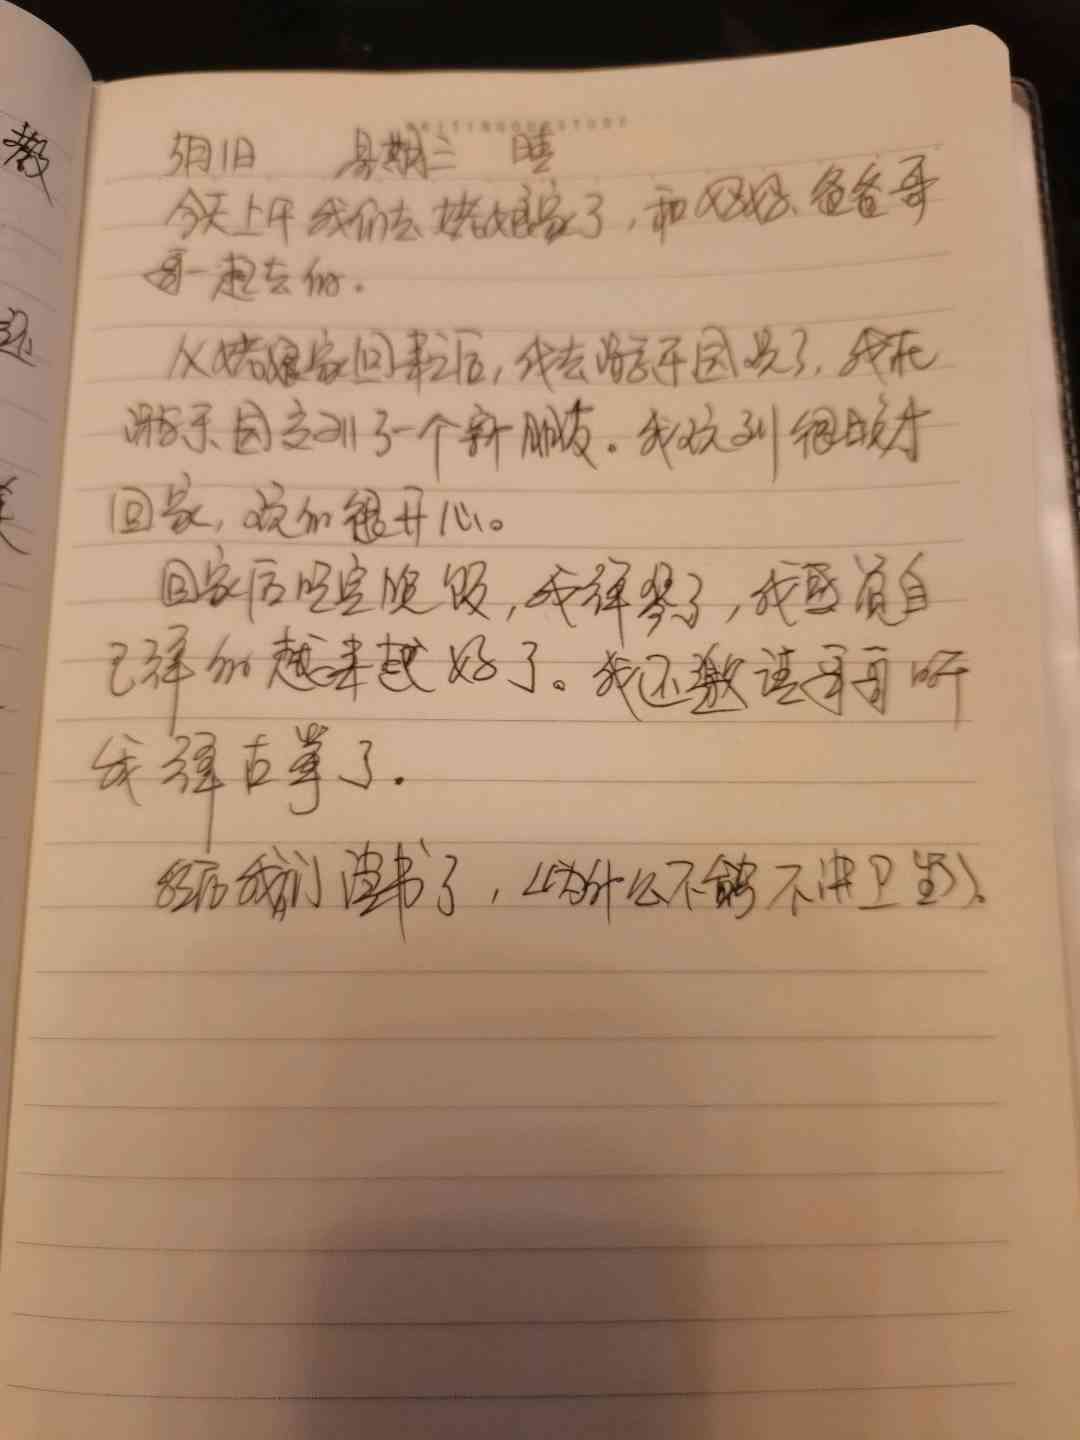 WRITING STUDY
5月1日 星期二 晴
今天上午我们去姥娘家了，和妈妈、爸爸哥
哥一起去的.
从姥娘家回来之后，我去游乐园玩了，我在
游乐园交到了一个新朋友。我玩到很晚才
回家，玩的很开心。
回家后吃完晚饭，我弹琴了，我感觉自
己弹的越来越好了。我还邀请哥哥听
我弹古筝了.
然后我们读书了，《为什么不能不讲卫生》。
教
还
美